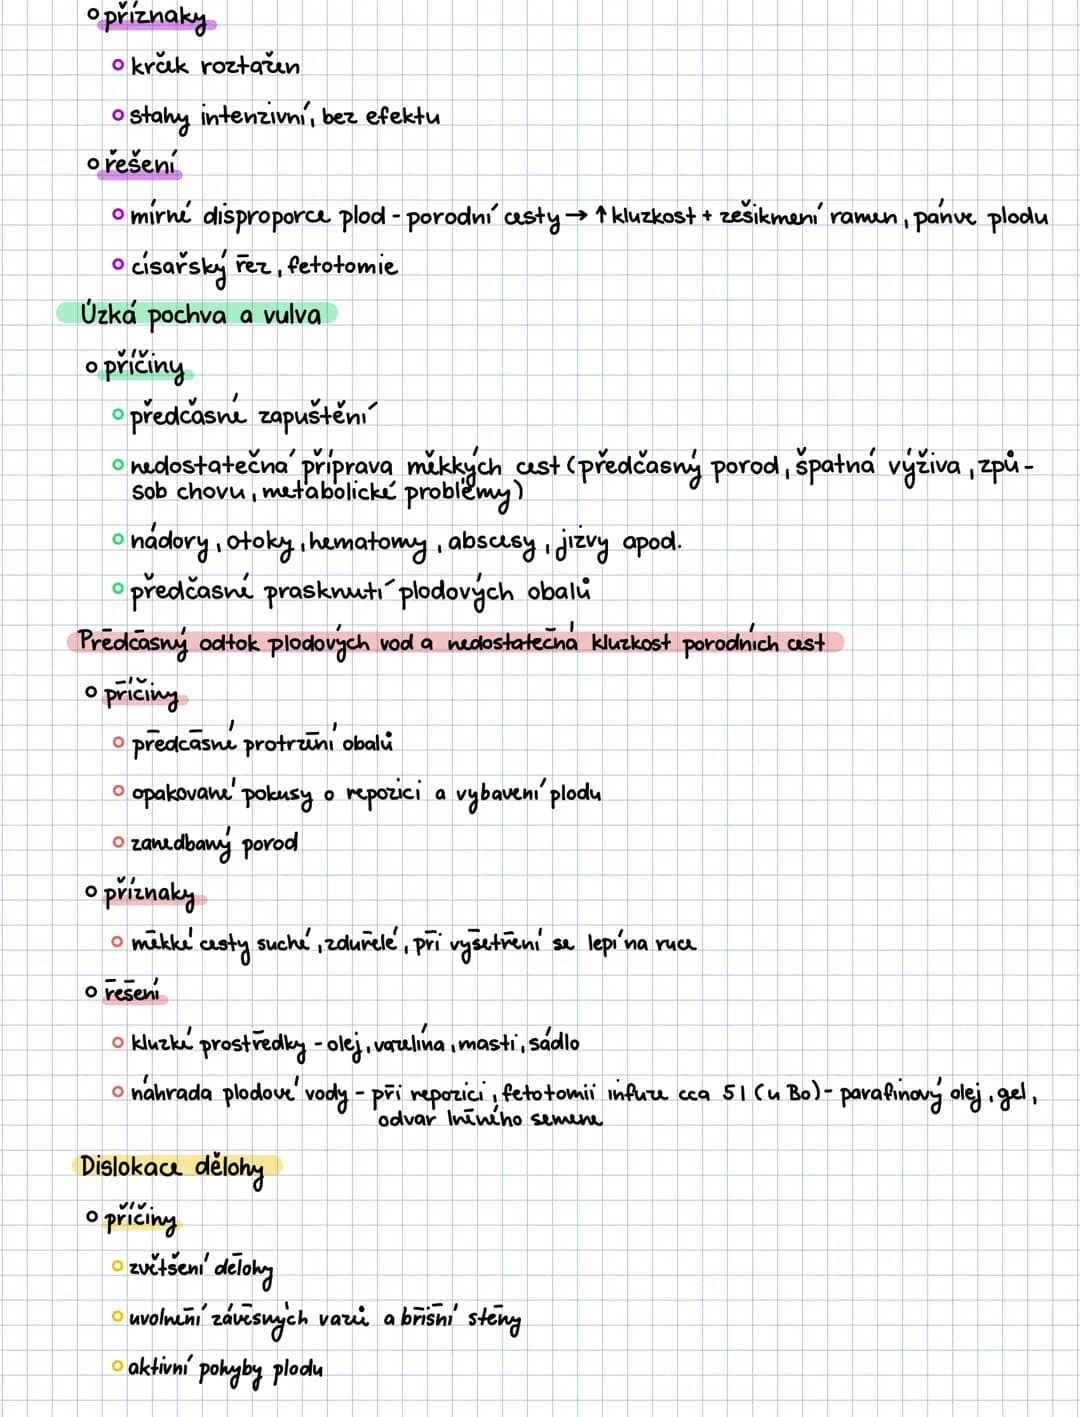 příznaky
krček roztažen
stahy intenzivní, bez efektu
řešení
mírné disproporce plod - porodní cesty → ↑ kluzkost + zešikmení ramen, pánve plodu
císařský řez, fetotomie
Úzká pochva a vulva
příčiny
předčasné zapuštění
nedostatečná příprava měkkých cest (předčasný porod, špatná výživa, způ-
sob chovu, metabolické problémy)
nádory, otoky, hematomy, abscesy, jizvy apod.
předčasné prasknutí plodových obalů
Předčasný odtok plodových vod a nedostatečná kluzkost porodních cest
příčiny
předčasné protržení obalů
opakované pokusy o repozici a vybavení plodu
zanedbaný porod
příznaky
měkké cesty suché, zduřelé, při vyšetření se lepí na ruce
řešení
kluzké prostředky - olej, vazelína, masti, sádlo
náhrada plodové vody - při repozici, fetotomii infuze cca 5 l (u Bo) - parafinový olej, gel,
odvar lněného semene
Dislokace dělohy
příčiny
zvětšení dělohy
uvolnění závěsných vazů a břišní stěny
aktivní pohyby plodu